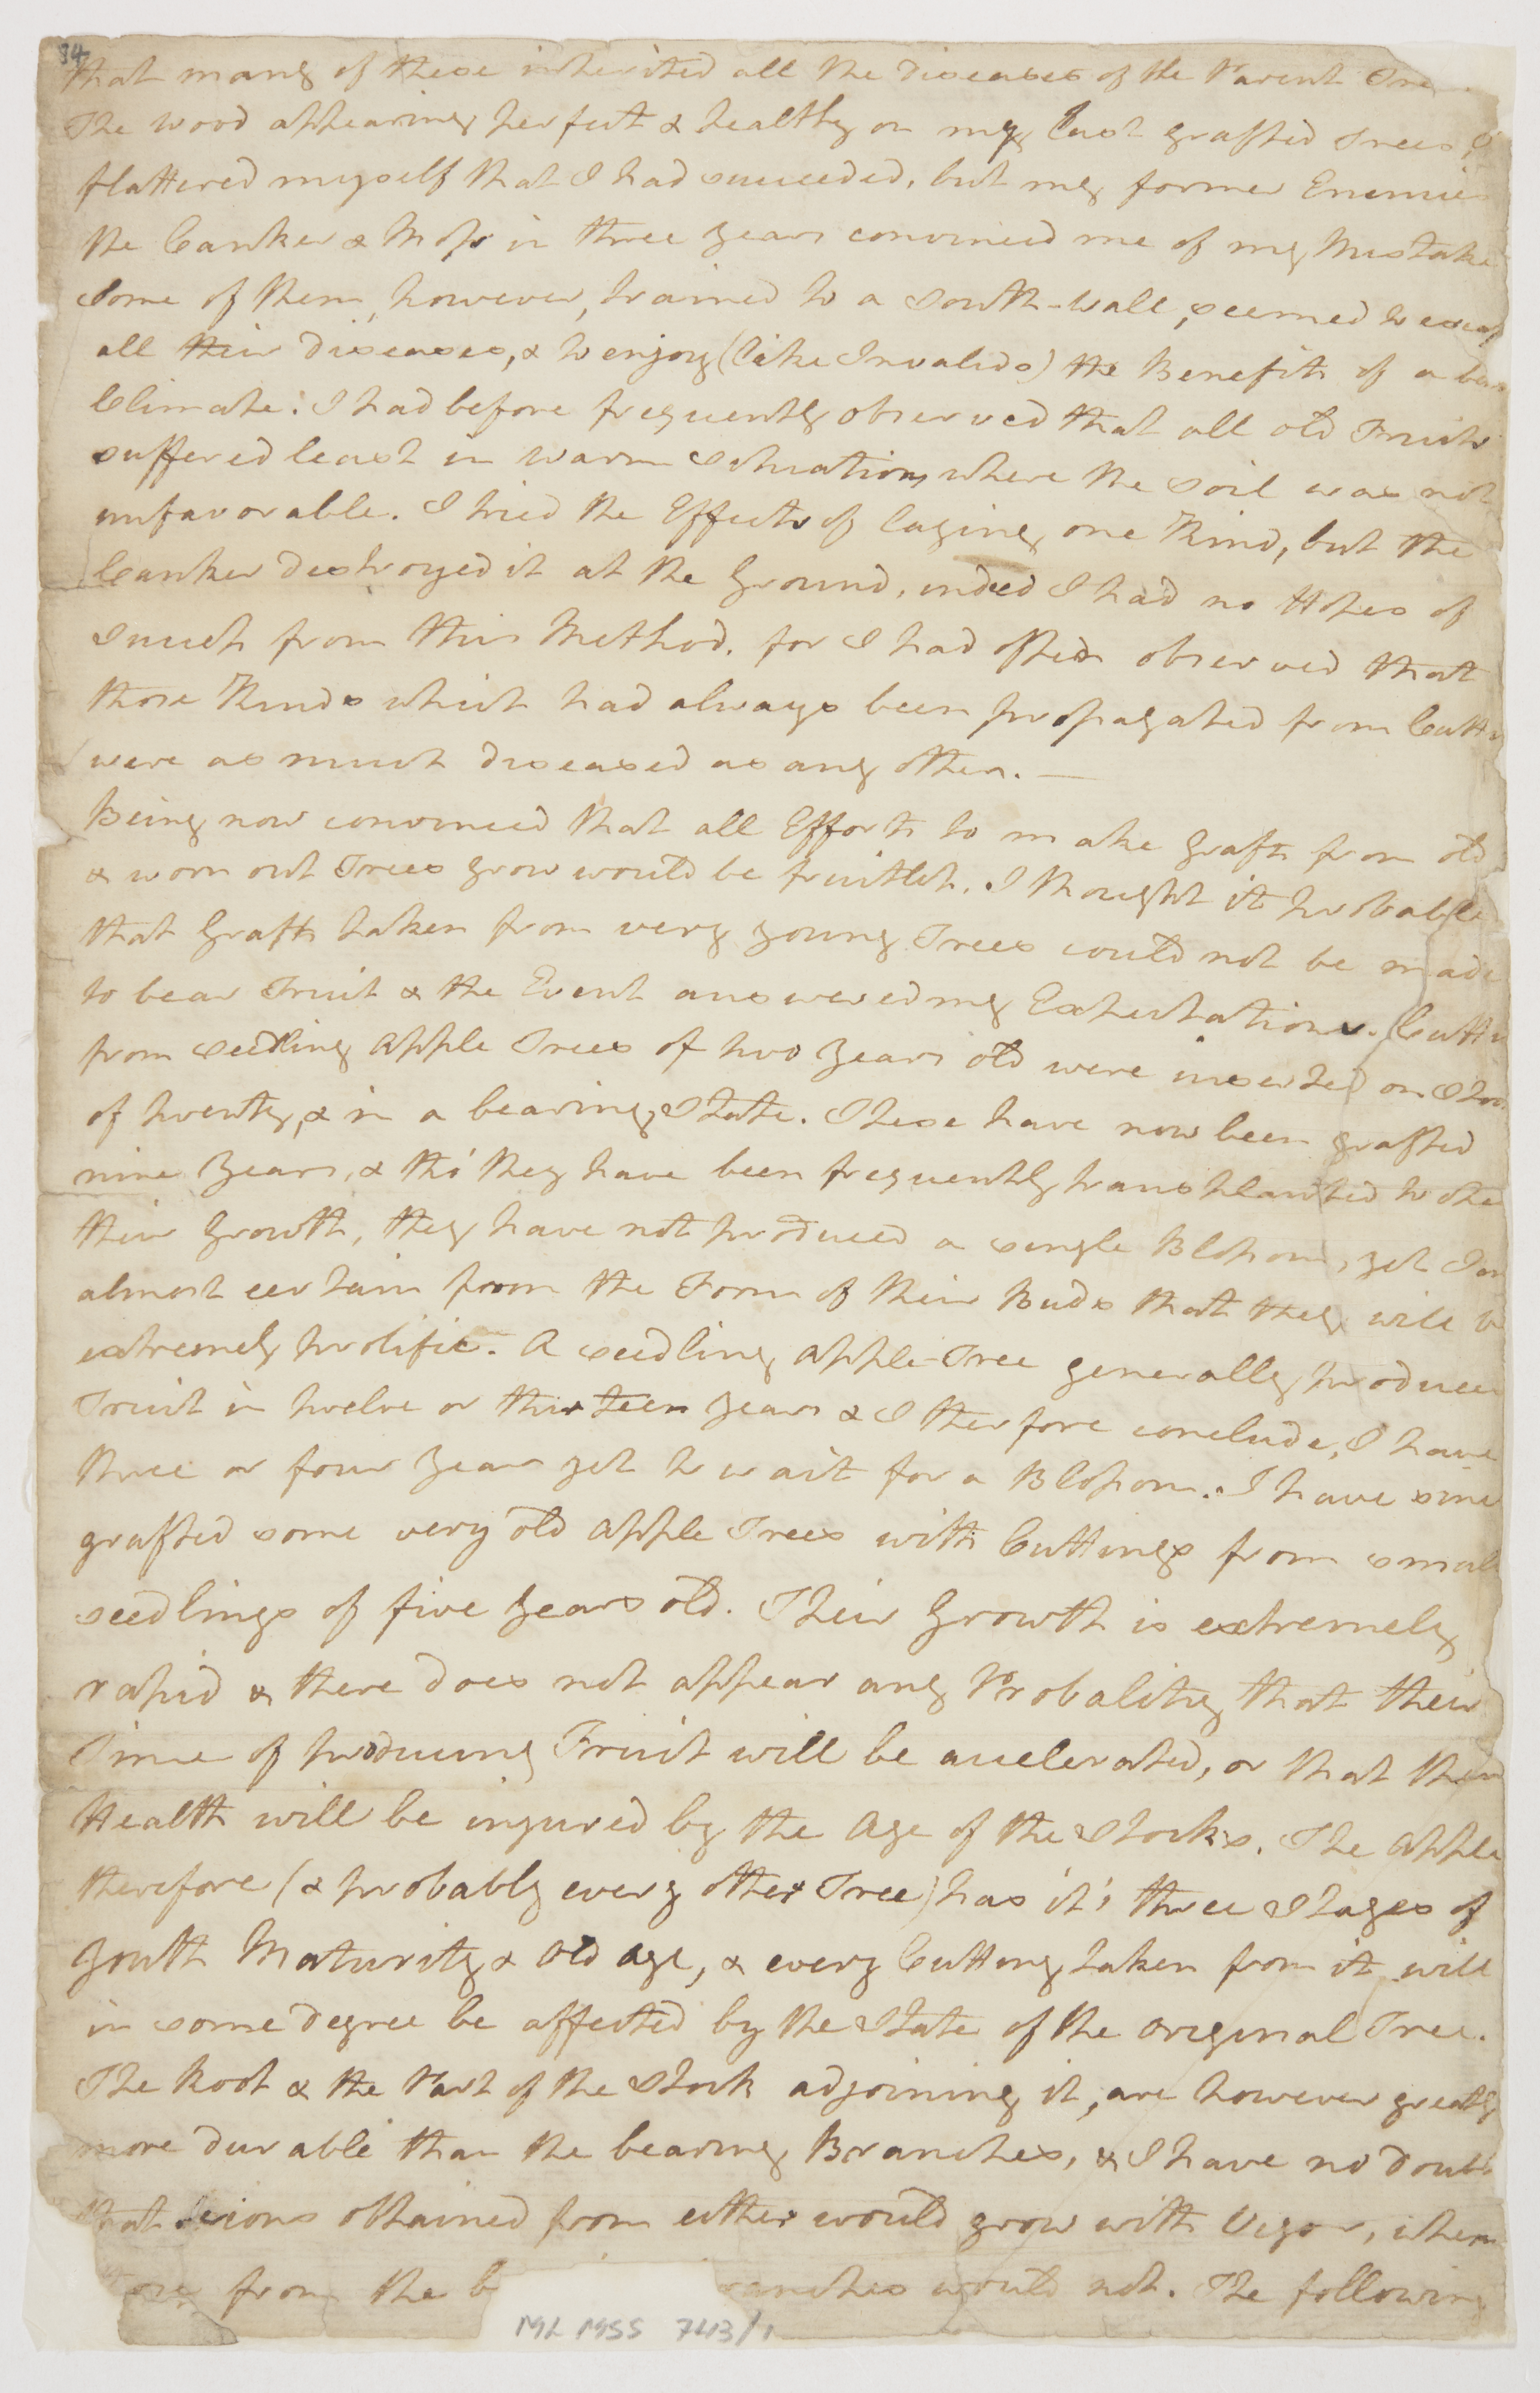 94
that many of these inherited all the diseases of the Parent Tree
The wood appearing perfect & healthy on my last grafted Trees, I
flattered myself that I had succeeded, but my former Enemies
the Canker & Moss in three years convinced me of my Mistake
Some of them, however, trained to a South-Wall, seemed to escape
all their diseases, & to enjoy (like Invalids) the Benefits of a
Climate. I had before frequently observed that all old Fruits
suffered least in warm Situations where the Soil was not
unfavorable. I tried the Effects of laying one Kind, but the
Canker destroyed it at the Ground, indeed I had no Hopes of
Success from this Method, for I had often observed that
those Kinds which had always been propagated from Cutt
were as much diseased as any other. —
Being now convinced that all Efforts to make Grafts from old
& worn out Trees grow would be fruitless, I thought it probable
that Grafts taken from very young Trees could not be made
to bear Fruit & the Event answered my Expectations. Cutt
from seedling Apple Trees of two Years old were inserted on Stoc
of twenty, & in a bearing State. These have now been grafted
nine Years, & tho' they have been frequently transplanted to
their Growth, they have not produced a single Blossom, yet I am
almost certain from the Form of their Buds that they will be
extremely prolific. A seedling Apple-Tree generally produces
Fruit in twelve or thirteen Years & I therfore conclude, I have
three or four Years yet to wait for a Blossom. I have since
grafted some very old Apple Trees with Cuttings from small
seedlings of five Years old. Their Growth is extremely
rapid & there does not appear any Probality that their
Time of producing Fruit will be accelerated, or that their
Health will be injured by the Age of the Stocks. The Apple
therefore (& probably every other Tree) has it's three Stages of
Youth Maturity & Old Age, & every Cutting taken from it will
in some degree be affected by the State of the original Tree.
The Root & the Part of the Stock adjoining it, are however greatly
more durable than the bearing Branches, & I have no doubt
that Scions obtained from either would grow with Vigor, when
those from the b ranches would not. The following
ML MSS 743/1